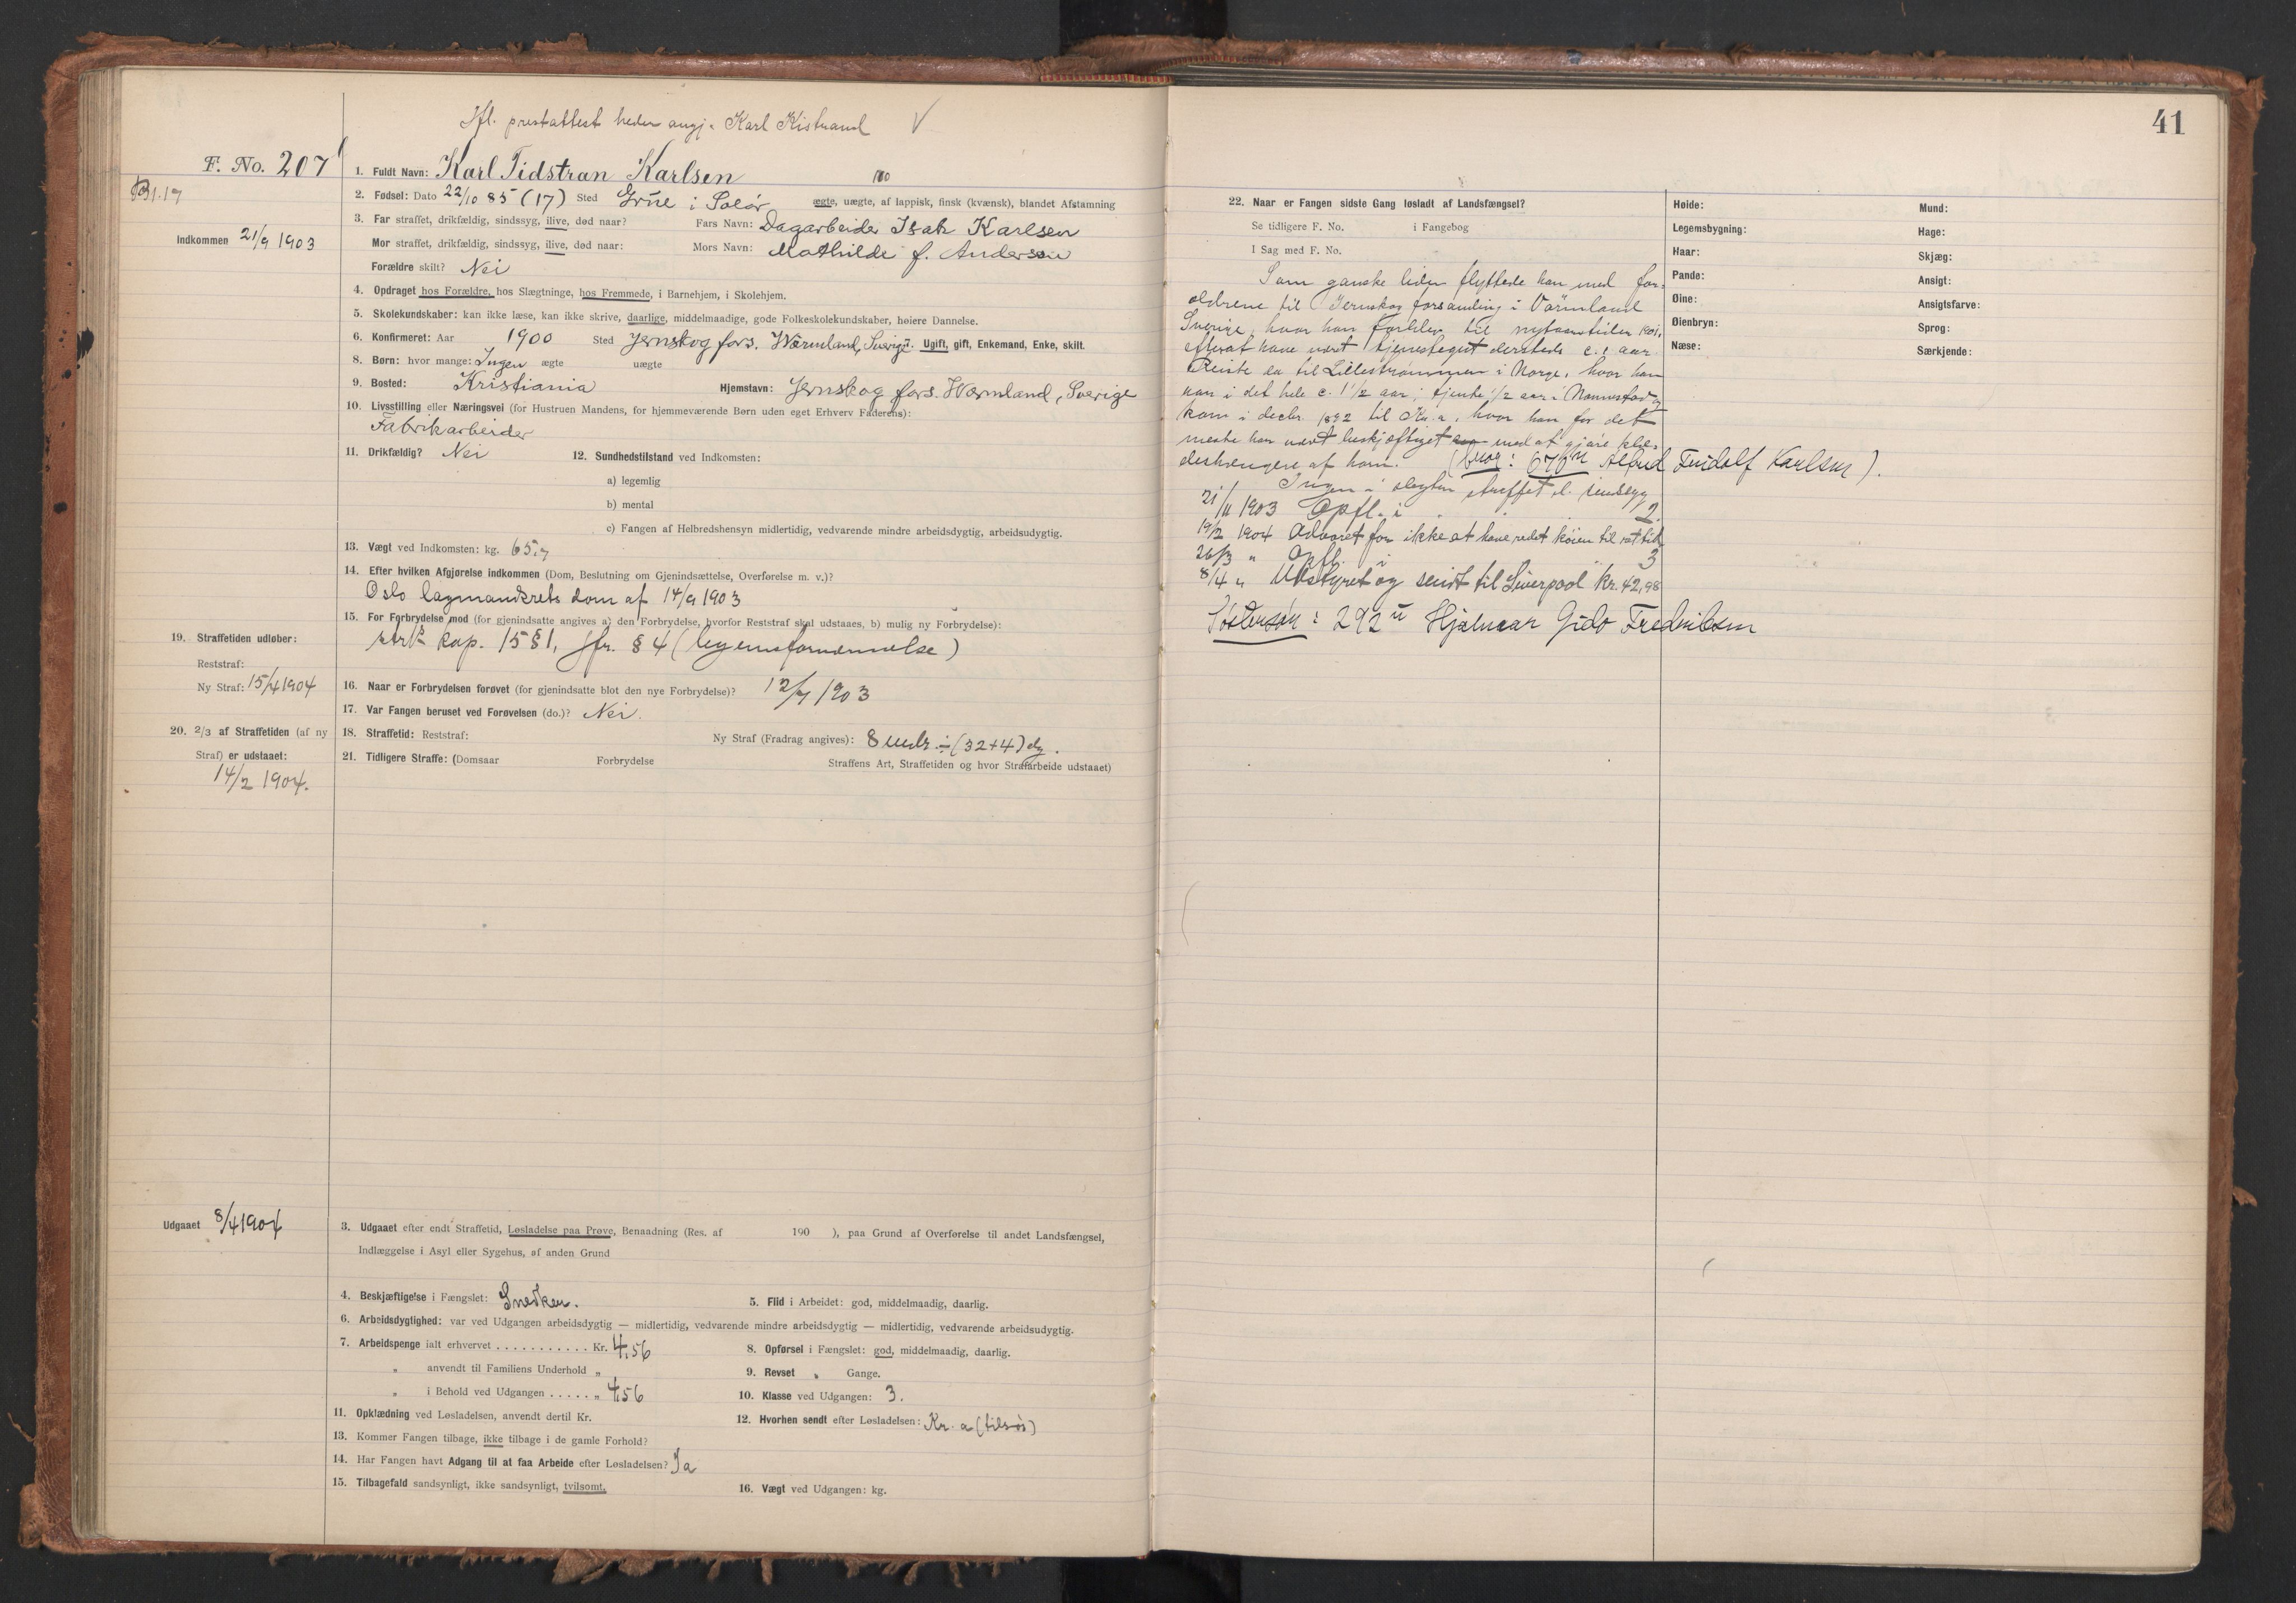 Ifl. prestattest heder angj. Karl Kistrand V
F. No. 207
B1.17
Indkommen 21/9 1903
1. Fuldt Navn: Karl Tidstran Karlsen
2. Fødsel: Dato 22/10 85 (17) Sted Grue i Solør ægte, uægte, af lappisk, finsk (kvænsk), blandet Afstamning
3. Far straffet, drikfældig, sindssyg, ilive, død naar? Fars Navn: Dagarbeider Isak Karlsen
Mor straffet, drikfældig, sindssyg, ilive, død naar: Mors Navn: Mathilde f. Andersen
Forældre skilt? Nei
4. Opdraget hos Forældre, hos Slægtninge, hos Fremmede, i Barnehjem, i Skolehjem.
5. Skolekundskaber: kan ikke læse, kan ikke skrive, daarlige, middelmaadige, gode Folkeskolekundskaber, høiere Dannelse.
6. Konfirmeret: Aar 1900 Sted Jernskog fors. Wärmland, Sverige. Ugift, gift, Enkemand, Enke, skilt.
8. Børn: hvor mange: Ingen ægte uægte
9. Bosted: Kristiania Hjemstavn: Jernskog fors. Wärmland, Sverige
10. Livsstilling eller Næringsvei (for Hustruen Mandens, for hjemmeværende Børn uden eget Erhverv Faderens):
Fabrikarbeider
11. Drikfældig? Nei 12. Sundhedstilstand ved Indkomsten:
a) legemlig
b) mental
c) Fangen af Helbredshensyn midlertidig, vedvarende mindre arbeidsdygtig, arbeidsudygtig.
13. Vægt ved Indkomsten: kg. 65,7
14. Efter hvilken Afgjørelse indkommen (Dom, Beslutning om Gjenindsættelse, Overførelse m. v.)?
Oslo lagmandsrets dom af 14/9 1903
15. For Forbrydelse mod (for gjenindsatte angives a) den Forbrydelse, hvorfor Reststraf skal udstaaes, b) mulig ny Forbrydelse):
kap. 15 § 1, jfr. § 4 (legemsfornærmelse)
19. Straffetiden udløber:
Reststraf:
Ny Straf: 15/4 1904
16. Naar er Forbrydelsen forøvet (for gjenindsatte blot den nye Forbrydelse)? 12/7 1903
17. Var Fangen beruset ved Forøvelsen (do.)? Nei.
18. Straffetid: Reststraf: Ny Straf (Fradrag angives): 8 mdr. ÷ (32+4) dg.
20. 2/3 af Straffetiden (af ny Straf) er udstaaet:
14/2 1904.
21. Tidligere Straffe: (Domsaar Forbrydelse Straffens Art, Straffetiden og hvor Strafarbeide udstaaet)
Udgaaet 8/4 1904
3. Udgaaet efter endt Straffetid, Løsladelse paa Prøve, Benaadning (Res. af 190 ), paa Grund af Overførelse til andet Landsfængsel,
Indlæggelse i Asyl eller Sygehus, of anden Grund
4. Beskjæftigelse i Fængslet: Snedker. 5. Flid i Arbeidet: god, middelmaadig, daarlig.
6. Arbeidsdygtighed: var ved Udgangen arbeidsdygtig — midlertidig, vedvarende mindre arbeidsdygtig — midlertidig, vedvarende arbeidsudygtig.
7. Arbeidspenge ialt erhvervet . . . . . . . . . . . Kr. 4,56 8. Opførsel i Fængslet: god, middelmaadig, daarlig.
„ anvendt til Familiens Underhold „ 9. Revset „ Gange.
„ i Behold ved Udgangen . . . . . „ 4,56 10. Klasse ved Udgangen: 3.
11. Opklædning ved Løsladelsen, anvendt dertil Kr. 12. Hvorhen sendt efter Løsladelsen: Kr.a (tilsjøs)
13. Kommer Fangen tilbage, ikke tilbage i de gamle Forhold?
14. Har Fangen havt Adgang til at faa Arbeide efter Løsladelsen? Ja
15. Tilbagefald sandsynligt, ikke sandsynligt, tvilsomt. 16. Vægt ved Udgangen: kg.
41
22. Naar er Fangen sidste Gang løsladt af Landsfængsel?
Se tidligere F. No. i Fangebog
I Sag med F. No.
Høide:
Legemsbygning:
Haar:
Pande:
Øine:
Øienbryn:
Næse:
Mund:
Hage:
Skjæg:
Ansigt:
Ansigtsfarve:
Sprog:
Særkjende:
Som ganske liden flyttede han med for-
ældrene til Jernskog forsamling i Värmland
Sverige, hvor han forblev til nytaarstider 1901,
efterat have været tjenestegut dersteds c. 1 aar.
Reiste da til Lillestrømmen i Norge, hvor han
var i det hele c. 1 1/2 aar, tjente 1/2 aar i Nannestad og
kom i decbr. 1892 til Kr.a, hvor han for det
meste har været beskjæftiget med at gjøre klæ-
deshængere af horn. (Bror: 670 Alfred Fridolf Karlsen).
Ingen i slegten straffet el. sindssyg
21/11 1903 Opfl. i 2.
19/2 1904 Advaret for ikke at have redet køien til ret tid
26/3 „ Opfl. i 3
8/4 „ Udstyret og sendt til Liverpool kr. 42,98
Søstersøn: 292 Hjalmar Gido Fredriksen